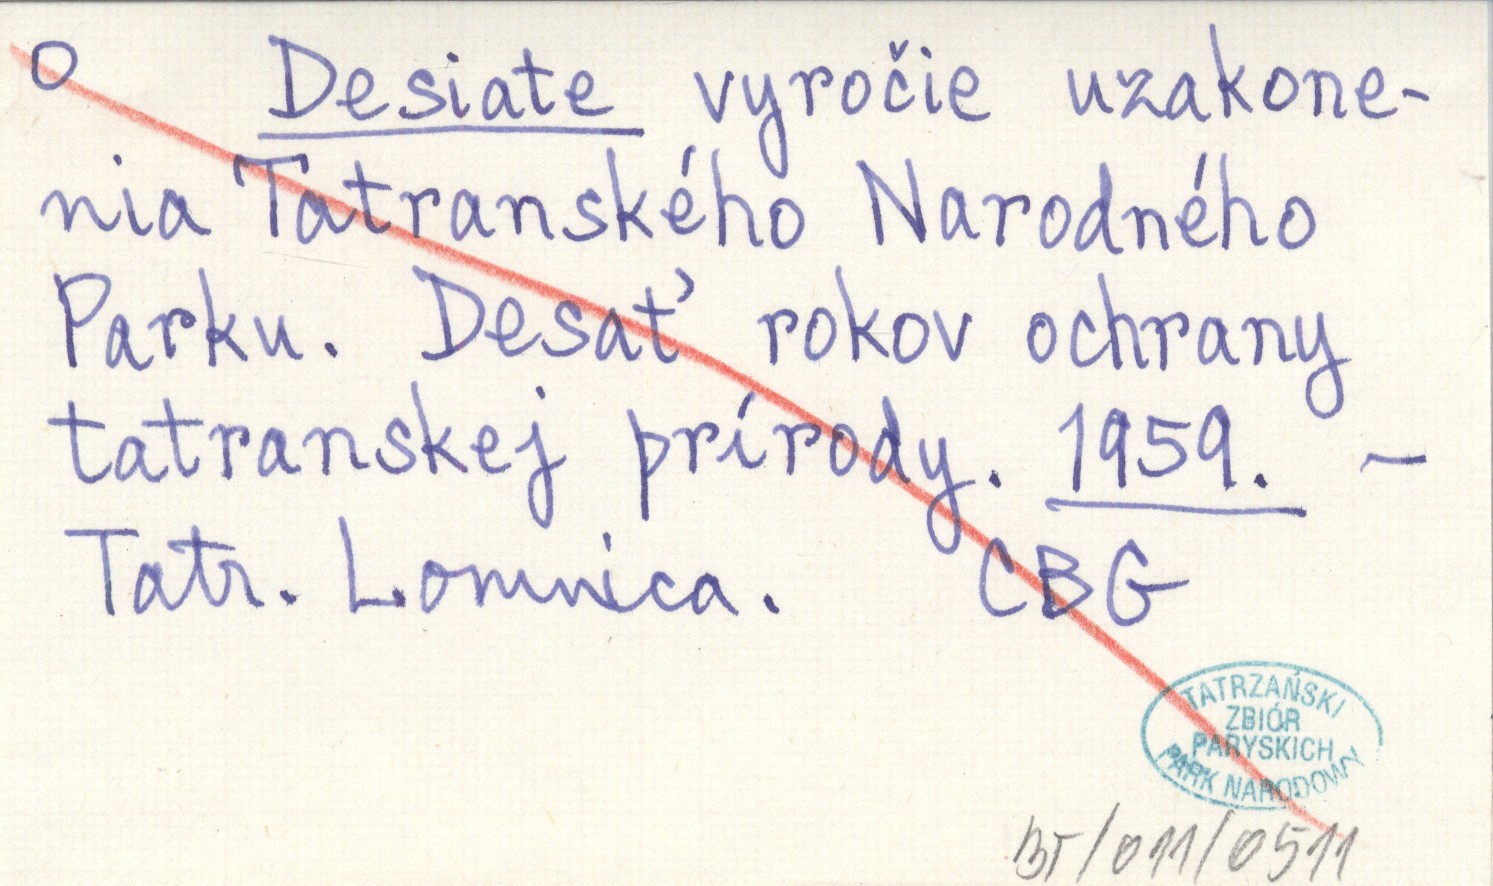 O Desiate vyročie uzakone-
nia Tatranského Narodného
Parku. Desať rokov ochrany
tatranskej prírody. 1959. –
Tatr. Lomnica. CBG
TATRZAŃSKI
ZBIÓR
PARYSKICH
PARK NARODOWY
BT/011/0511